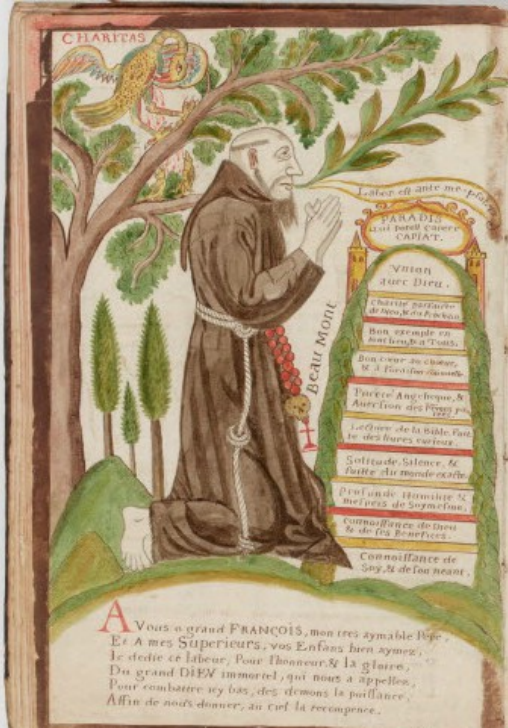 CHARITAS
Labor est ante me
PARADIS
qui potest capere
CAPIAT.
Vnion
auec Dieu.
Charité parfaitte
de Dieu, & du
Bon exemple en
tout lieu, & a Touts.
Bon cœur au chœur,
& a
Pureté Angelique, &
Auersion des
Lecture de la Bible, fuit
te des liures curieux.
Solitude, Silence, &
fuitte du monde exacte
Profonde Humilité &
mespris de Soymesme,
Connoissance de Dieu
& de ses Benefices.
Connoissance de
Soy, & de son neant.
BEAU MONT
A Vous o grand FRANÇOIS, mon tres aymable Pere,
Et A mes Superieurs, vos Enfans bien aymez,
Ie dedie ce labeur, Pour l'honneur, & la gloire,
Du grand DIEV immortel, qui nous a appellez,
Pour combattre icy bas, des demons la puissance,
Affin de nous donner, au Ciel la recompence.